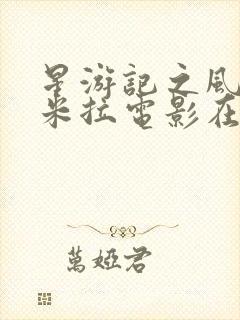 星游記之風
米拉電影在
萬婭君